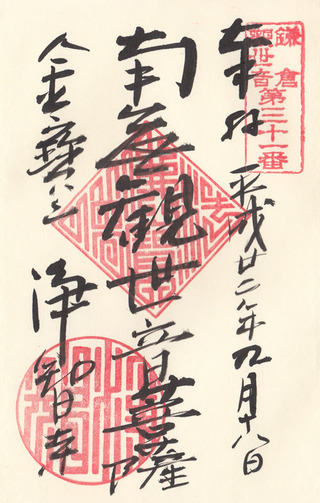 鎌倉
観世音第三十一番
奉拝 平成廿二年九月十八日
南無観世音菩薩
金宝山
浄智寺